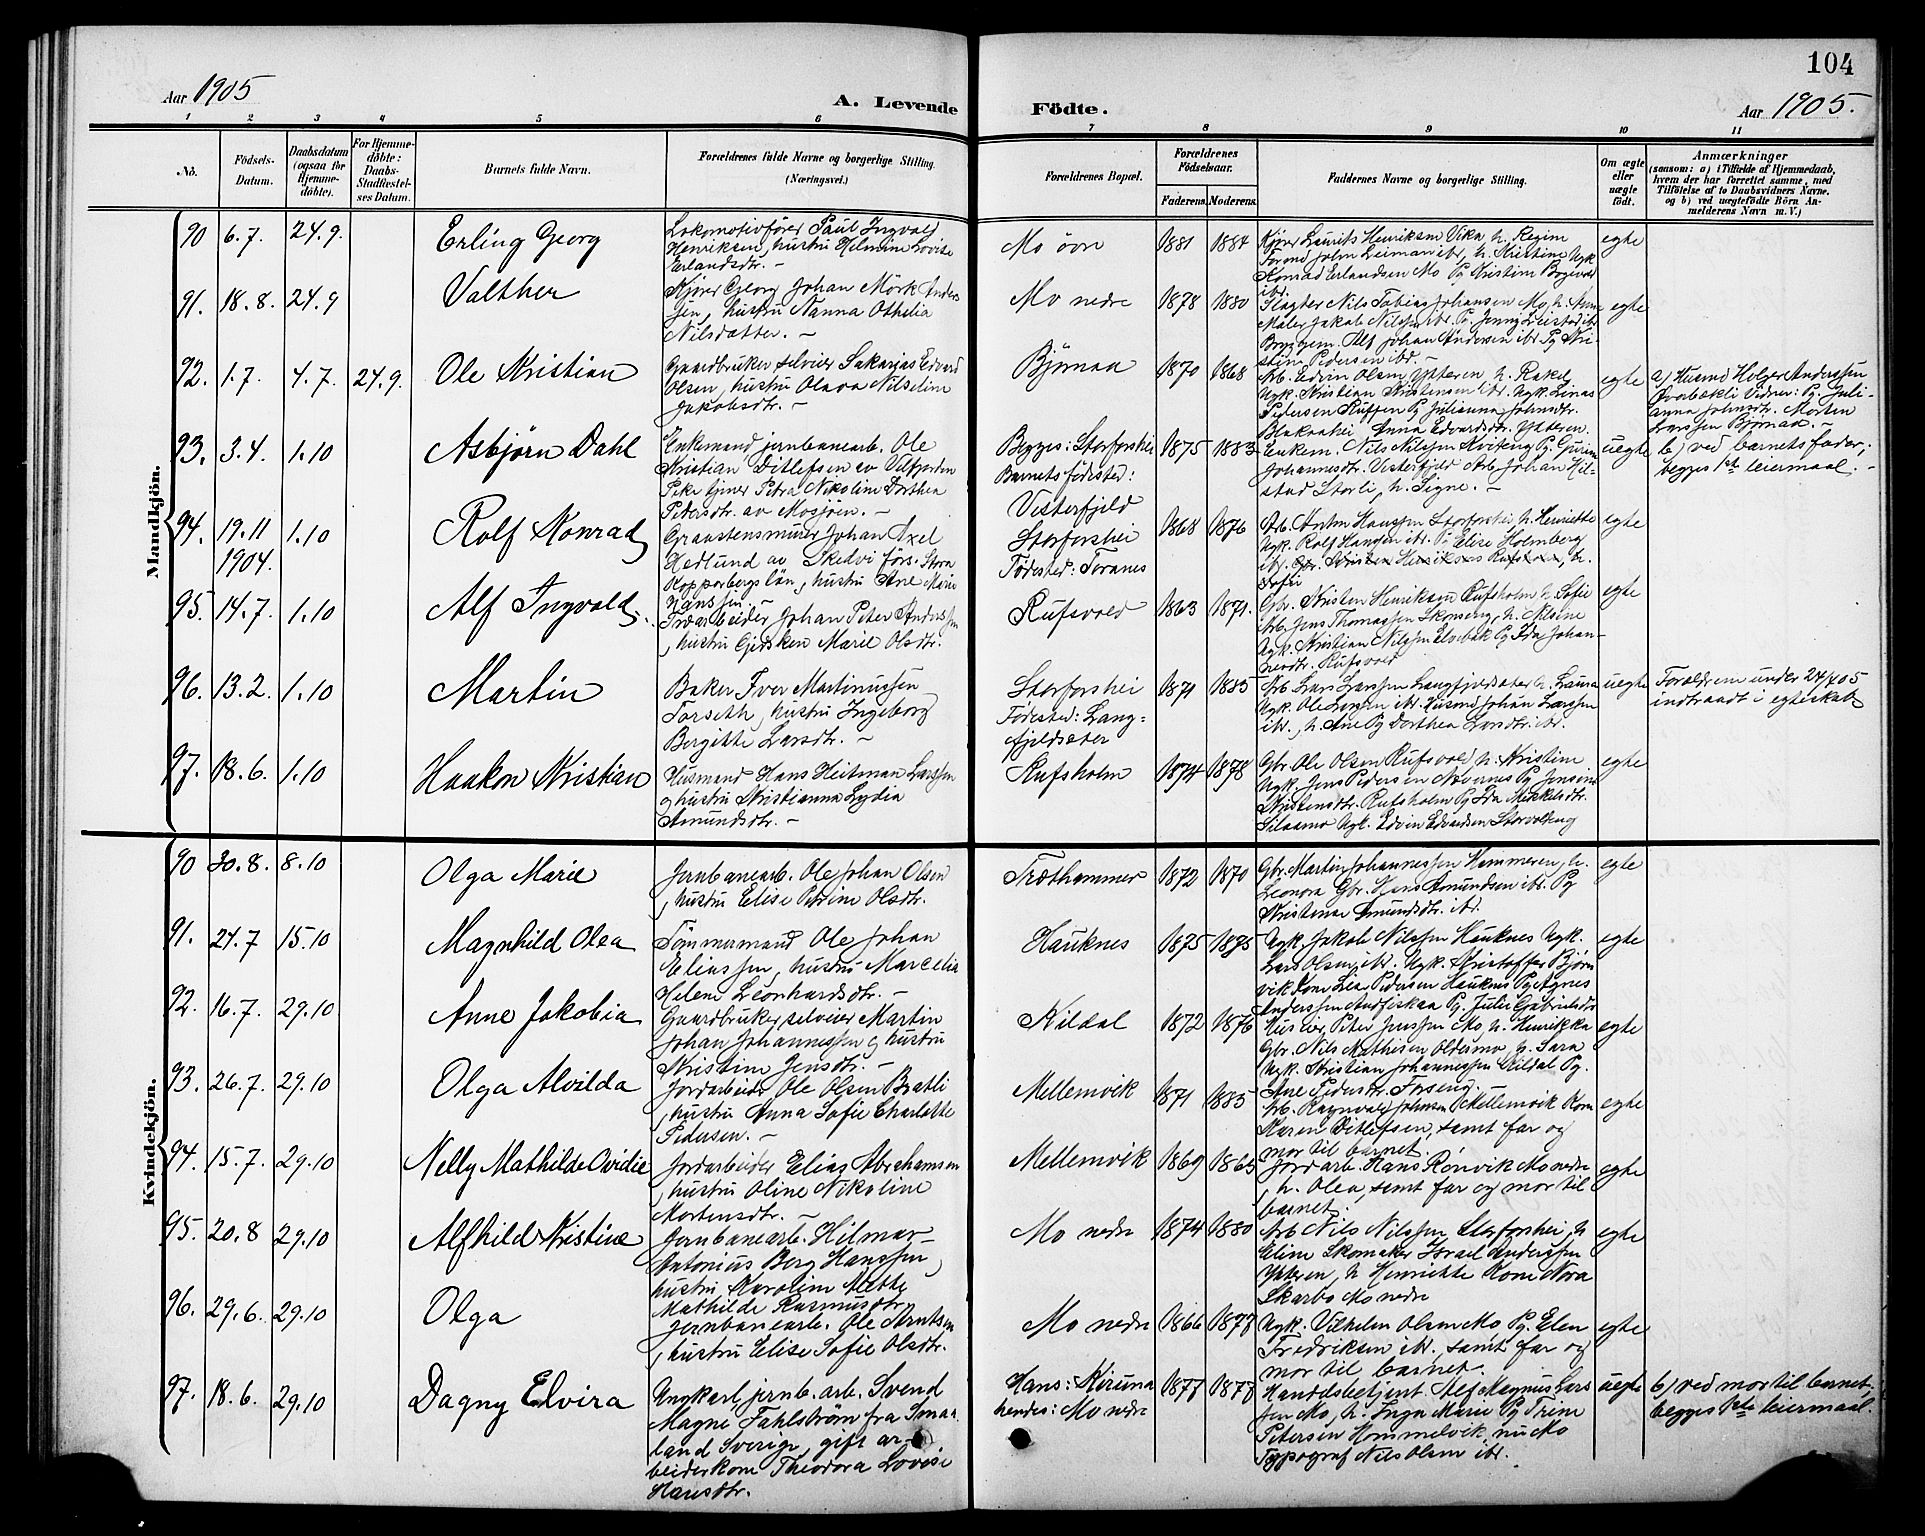 104
Aar 1905
A. Levende
Födte.
Aar 1905.
1 2 3 4 5 6 7 8 9 10 11
No.
Födsels-
Datum.
Daabsdatum
(ogsaa for
Hjemme-
döbte).
For Hjemme-
döbte:
Daabs-
Stadfæstel-
ses Datum.
Barnets fulde Navn.
Forældrenes fulde Navne og borgerlige Stilling.
(Næringsvei.)
Forældrenes Bopæl.
Forældrenes
Födselsaar.
Faderens. Moderens.
Faddernes Navne og borgerlige Stilling.
Om ægte
eller
uægte
födt.
Anmærkninger
(saasom: a) i Tilfælde af Hjemmedaab,
hvem der har forrettet samme, med
Tilföielse af to Daabsvidners Navne.
og b) ved uægtefödte Börn An-
melderens Navn m. V.)
Mandkjön.
90 6.7. 24.9. Erling Georg
Lokomotivfører Paul Ingvald
Henriksen, hustru Helmine Lovise
Erlandsdtr. –
Mo övre 1881 1884
Kjører Laurits Henriksen Vika h. Regine
egte
91. 18.8. 24.9 Valther
Kjører Georg Johan Mörk Anders
sen, hustru Nanna Othelia
Nilsdatter. –
Mo nedre 1878 1880
Slagter Nils Tobias Johansen Mo, h.
Maler Jakob Nilssen ibr. Pg. Jenny
Johan Andersen ibr Pg Kri-
stine Pedersen ibr. –
egte
92. 1.7. 4.7. 24.9. Ole Kristian
Gaardbruker selveier Sakarias Edvard
Olsen, hustru Olava Nilseline
Jakobsdtr. –
Bjørnaa 1870 1868
Arb. Edvin Olsen Ytteren h. Rakel
Ugk. Kristian Kristensen ibr. Ugk. Linas
Pedersen Pg Julianna Johnsdtr.
Anna Edvardsdtr. Ytteren.
egte
a) Husmd Holger Anderssen
Vidner: Pg. Juli-
anna Johnsdtr. Morten
Larssen Bjørnaa. –
93. 3.4. 1.10 Asbjörn Dahl
Enkemand jernbanearb. Ole
Kristian Ditlefsen av Velfjorden
Pike tjener Petra Nikoline Dorthea
Pedersdtr. av Mosjöen. –
Begges: Storforshei
Barnets fødested:
Visterfjeld
1875 1883
Enkem. Nils Nilssen Kviteng Pg. Gurine
Johannesdtr. Visterfjeld Arb. Johan Hil-
stad Storli, h. Signe. –
uegte
b) ved barnets fader;
begges 1ste leiermaal. –
94. 19.11
1904. 1.10 Rolf Konrad
Graastensmurer Johan Axel
Hedlund av Skedvi förs. Stora
Kopparbergs län, hustru Ane Marie
Hanssen –
Storforshei
Fødested: Toranes
1868 1876
Arb. Anton Hanssen Storforshei h. Henriette
Ugk. Rolf Hansen ibr. Pg Elise Holmberg
ibr. Gbr. Kristen Henriksen Rufsholm, h.
Sofie
egte
95. 14.7. 1.10 Alf Ingvald.
Jordarbeider Johan Peter Anderssen
, hustru Gjertken Marie Olsdtr.
Rufsvold 1863 1871.
Gbr. Kristen Henriksen Rufsholm h. Sofie
Arb. Jens Thomassen Skonseng, h. Alsine
Ugk. Kristian Nilssen Elvebak Pg Ida Johan-
nesdtr. Rufsvold
egte
96. 13.2. 1.10 Martin
Baker Iver Martinussen
Forseth, hustru Ingeborg
Bergitte Larsdtr. –
Storforshei
Fødested: Lang-
fjeldsæter
1871 1885
Arb. Lars Larssen Langfjeldsæter h. Laura
Ugk. Ole Larssen ibr. Husmd Johan Larssen
ibr., h. Ane Pg Dorthea Larsdtr. ibr.
uegte
Foreldrene under 24/4 05
indtraadt i egteskab
97. 18.6. 1.10 Haakon Kristian
Husmand Hans Heitman Larssen
og hustru Kristianna Lydia
Amundsdtr. –
Rufsholm 1874 1878
Gbr Ole Olsen Rufsvold h. Kristine
Ugk. Jens Pedersen Nævernes Pg Jensine
Kristensdtr. Rufsholm Pg Ida Mikkelsdtr.
Silaamo Ugk. Edvin Edvardsen Storvolleng
egte
Kvindekjön.
90 30.8. 8.10 Olga Marie
Jernbanearb. Ole Johan Olsen
, hustru Elise Petrine Olsdtr.
Træthammer 1872 1870
Gbr. Martin Johannessen Hammeren, h.
Leonora Gbr. Hans Amundsen ibr. Pg
Kristense Amundsdtr. ibr.
egte
91. 24.7 15.10 Magnhild Olea
Tømmermand Ole Johan
Eliassen, hustru Marcelia
Helene Leonhardsdtr. –
Hauknes 1875 1875
Ugk. Jakob Nilssen Hauknes Ugk.
Lars Olsen, ibr. Ugk. Kristoffer Bjørn
vik Kone Lina Pedersen Hauknes Pg Agnes
Anderssen Andfiskaa Pg. Julie Gabrielsdtr
egte
92. 16.7. 29.10 Anne Jakobia
Gaardbruker, selveier Martin
Johan Johannessen og hustru
Kristine Jensdtr. –
Kildal 1872 1876
Huseier, Peter Jenssen Mo, h. Henrikka
Gbr. Nils Mathisen Oldermo, h. Sara
Ugk. Kristian Johannessen Kildal Pg.
Ane Pedersdtr. Forseng. –
egte
93. 26.7. 29.10 Olga Alvilda
Jordarbeider Ole Olsen Bratli
, hustru Anna Sofie Charlotte
Pedersen. –
Mellemvik 1871 1885
Arb. Ragnvald Johansen Mellemvik Kone
Maren Ditlefsen, samt far og
mor til barnet.
egte
94. 15.7. 29.10 Nelly Mathilde Ovidie
Jordarbeider Elias Abrahamsen
, hustru Oline Nikoline
Mortensdtr. –
Mellemvik 1869 1865
Jordarb. Hans Rønvik Mo nedre
, h. Olea, samt far og mor til
barnet.
egte
95. 20.8 29.10 Alfhild Kristine
Jernbanearb. Hilmar
Antonius Berg Hanssen,
hustru Karoline Mette
Mathilde Rasmusdtr.
Mo nedre 1874 1880
Arb Nils Nilssen Storforshei, h
Eline Skomaker Israel Anderssen
Ytteren, h Henriette Kone Nora
Skarbo Mo nedre
egte
96. 29.6. 29.10 Olga
Jernbanearb. Ole Arntsen
, hustru Elise Sofie Olsdtr.
Mo nedre 1866 1877
Ugk. Vilhelm Olsen Mo Pg. Elen
Fredriksen ibr., samt far og
mor til barnet.
egte
97. 18.6. 29.10 Dagny Elvira
Ungkarl jernb. arb. Svend
Magne Fahlström fra Smaa
land Sverige, gift ar-
beiderkone Theodora Lovise
Hansdtr.
Hans: Kiruna
hendes: Mo nedre
1877 1877
Handelsbetjent Alf Magnus Lars
sen Mo, h. Inga Marie Pg Trine
Petersen Hommelvik, nu Mo
Typograf Nils Olsen ibr.
uegte
b) ved mor til barnet,
begges 1ste leiermaal.